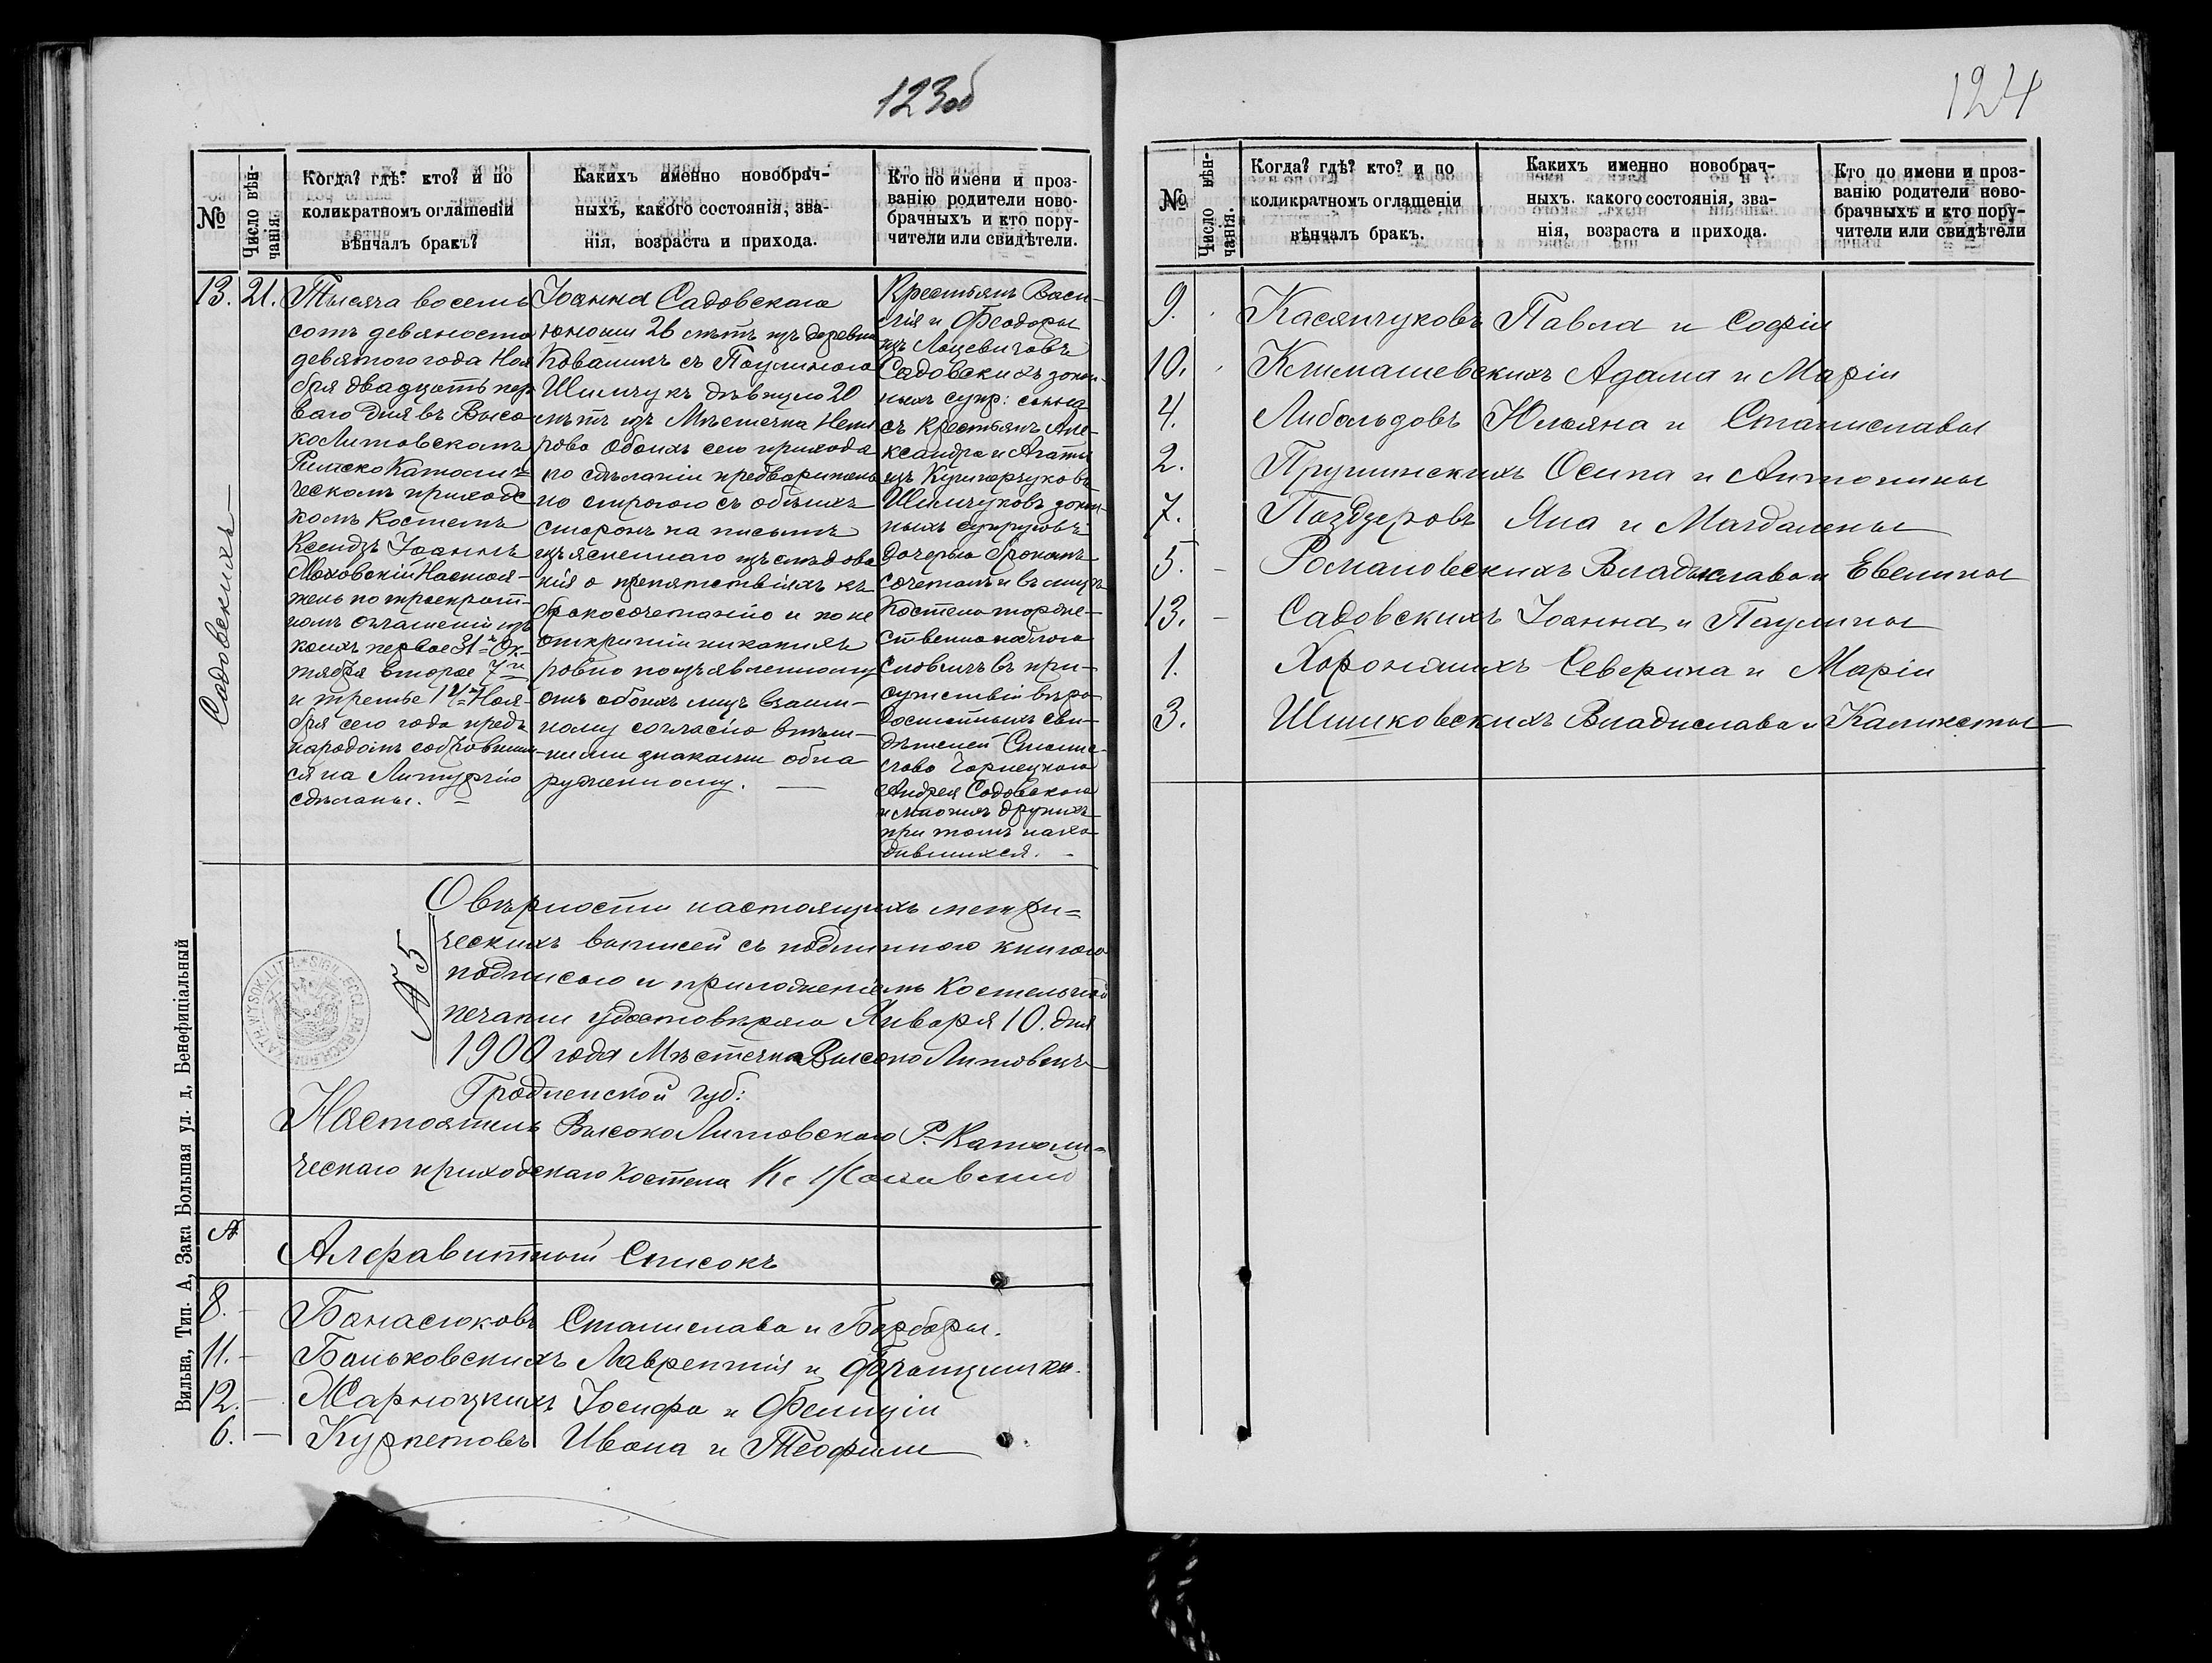 123об
№
Число вѣн-
чанія.
Когда? гдѣ? кто? и по
коликратномъ оглашеніи
вѣнчалъ бракъ?
Какихъ именно новобрач-
ныхъ, какого состоянія, зва-
нія, возраста и прихода.
Кто по имени и проз-
ванію родители ново-
брачныхъ и кто пору-
чители или свидѣтели.
13.
21.
Садовскихъ
Тысяча восемь
сотъ девяносто
девятого года Ноя
бря двадцать пер
ваго дня въ Высо
коЛитовскомъ
РимскоКатоли=
ческомъ приход
комъ Костелѣ
Ксендзъ Іоаннъ
Маховскій Настоя-
тель по троекрат-
номъ оглашеніи изъ
коихъ первое 31го Ок-
тября второе 7го
и третье 14го Ноя-
бря сего года предъ
народомъ собровшим
ся на Литургію
сдѣланы. —
Іоанна Садовскаго
юношу 26 лѣтъ изъ деревни
Ковалики съ Паулиною
Шимчукъ дѣвицею 20
лѣтъ изъ Мѣстечка Неми
рово Обоихъ сего прихода
по сдѣланіи предваритель
но строгого съ обѣихъ
сторонъ на письмѣ
изъясненнаго изъслѣдова
нія о препятствіяхъ къ
бракосочетанію и по не
открытіи никакихъ
ровно по изъявленному
отъ обоихъ лицъ взаим-
ному согласію внѣш-
ними знаками обна
руженному. —
Крестьянъ Васи-
лія и Феодоры
изъ Лацевичовъ
Садовскихъ закон-
ныхъ супр: сына
съ крестьянъ Але-
ксандра и Агаты
изъ Кушнарчуковъ
Шимчуковъ закон-
ныхъ супруговъ
дочерью бракомъ
сочеталъ и въ лицѣ
Костела торже-
ственно поблого
словилъ въ при-
сутствіи вѣро
достойныхъ сви-
дѣтелей Станис-
лава Чарнецкаго
Андрея Садовскаго
и многихъ другихъ
при томъ нахо
дившихся. —
№ 5
О вѣрности настоящихъ метри=
ческихъ выписей съ подлинною книгою
подписью и приложеніемъ Костельной
печати удостовѣряю Января 10. дня
1900 года Мѣстечко Высоко Литовскъ
Гродненской губ:
Настоятель ВысокоЛитовскаго Р.-Католи=
ческаго приходскаго Костела Кс Маховскій
№
Алфавитный Списокъ
8. — Банасюковъ Станислава и Барбары.
11. — Баньковскихъ Лаврентія и Францишки.
12. — Жарнюцкихъ Іосифа и Фелиціи
6. — Курпетовъ Ивана и Теофили
Вильна, Тип. А, Зака Большая ул. д. Бенефиціальный
124
№
Число вѣн-
чанія.
Когда? гдѣ? кто? и по
коликратномъ оглашеніи
вѣнчалъ бракъ.
Какихъ именно новобрач-
ныхъ. какого состоянія, зва-
нія, возраста и прихода.
Кто по имени и проз-
ванію родители ново-
брачныхъ и кто пору-
чители или свидѣтели
9. Касянчуковъ Павла и Софіи
10. Климашевскихъ Адама и Маріи
4. Либольдовъ Юльяна и Станиславы
2. Пружинскихъ Осипа и Антонины
7. Паздзеровъ Яна и Магдалены
5. — Романовскихъ Владыслава и Евелины
13. — Садовскихъ Іоанна и Паулины
1. Харонжихъ Северина и Маріи
3. Шишковскихъ Владислава и Каликсты